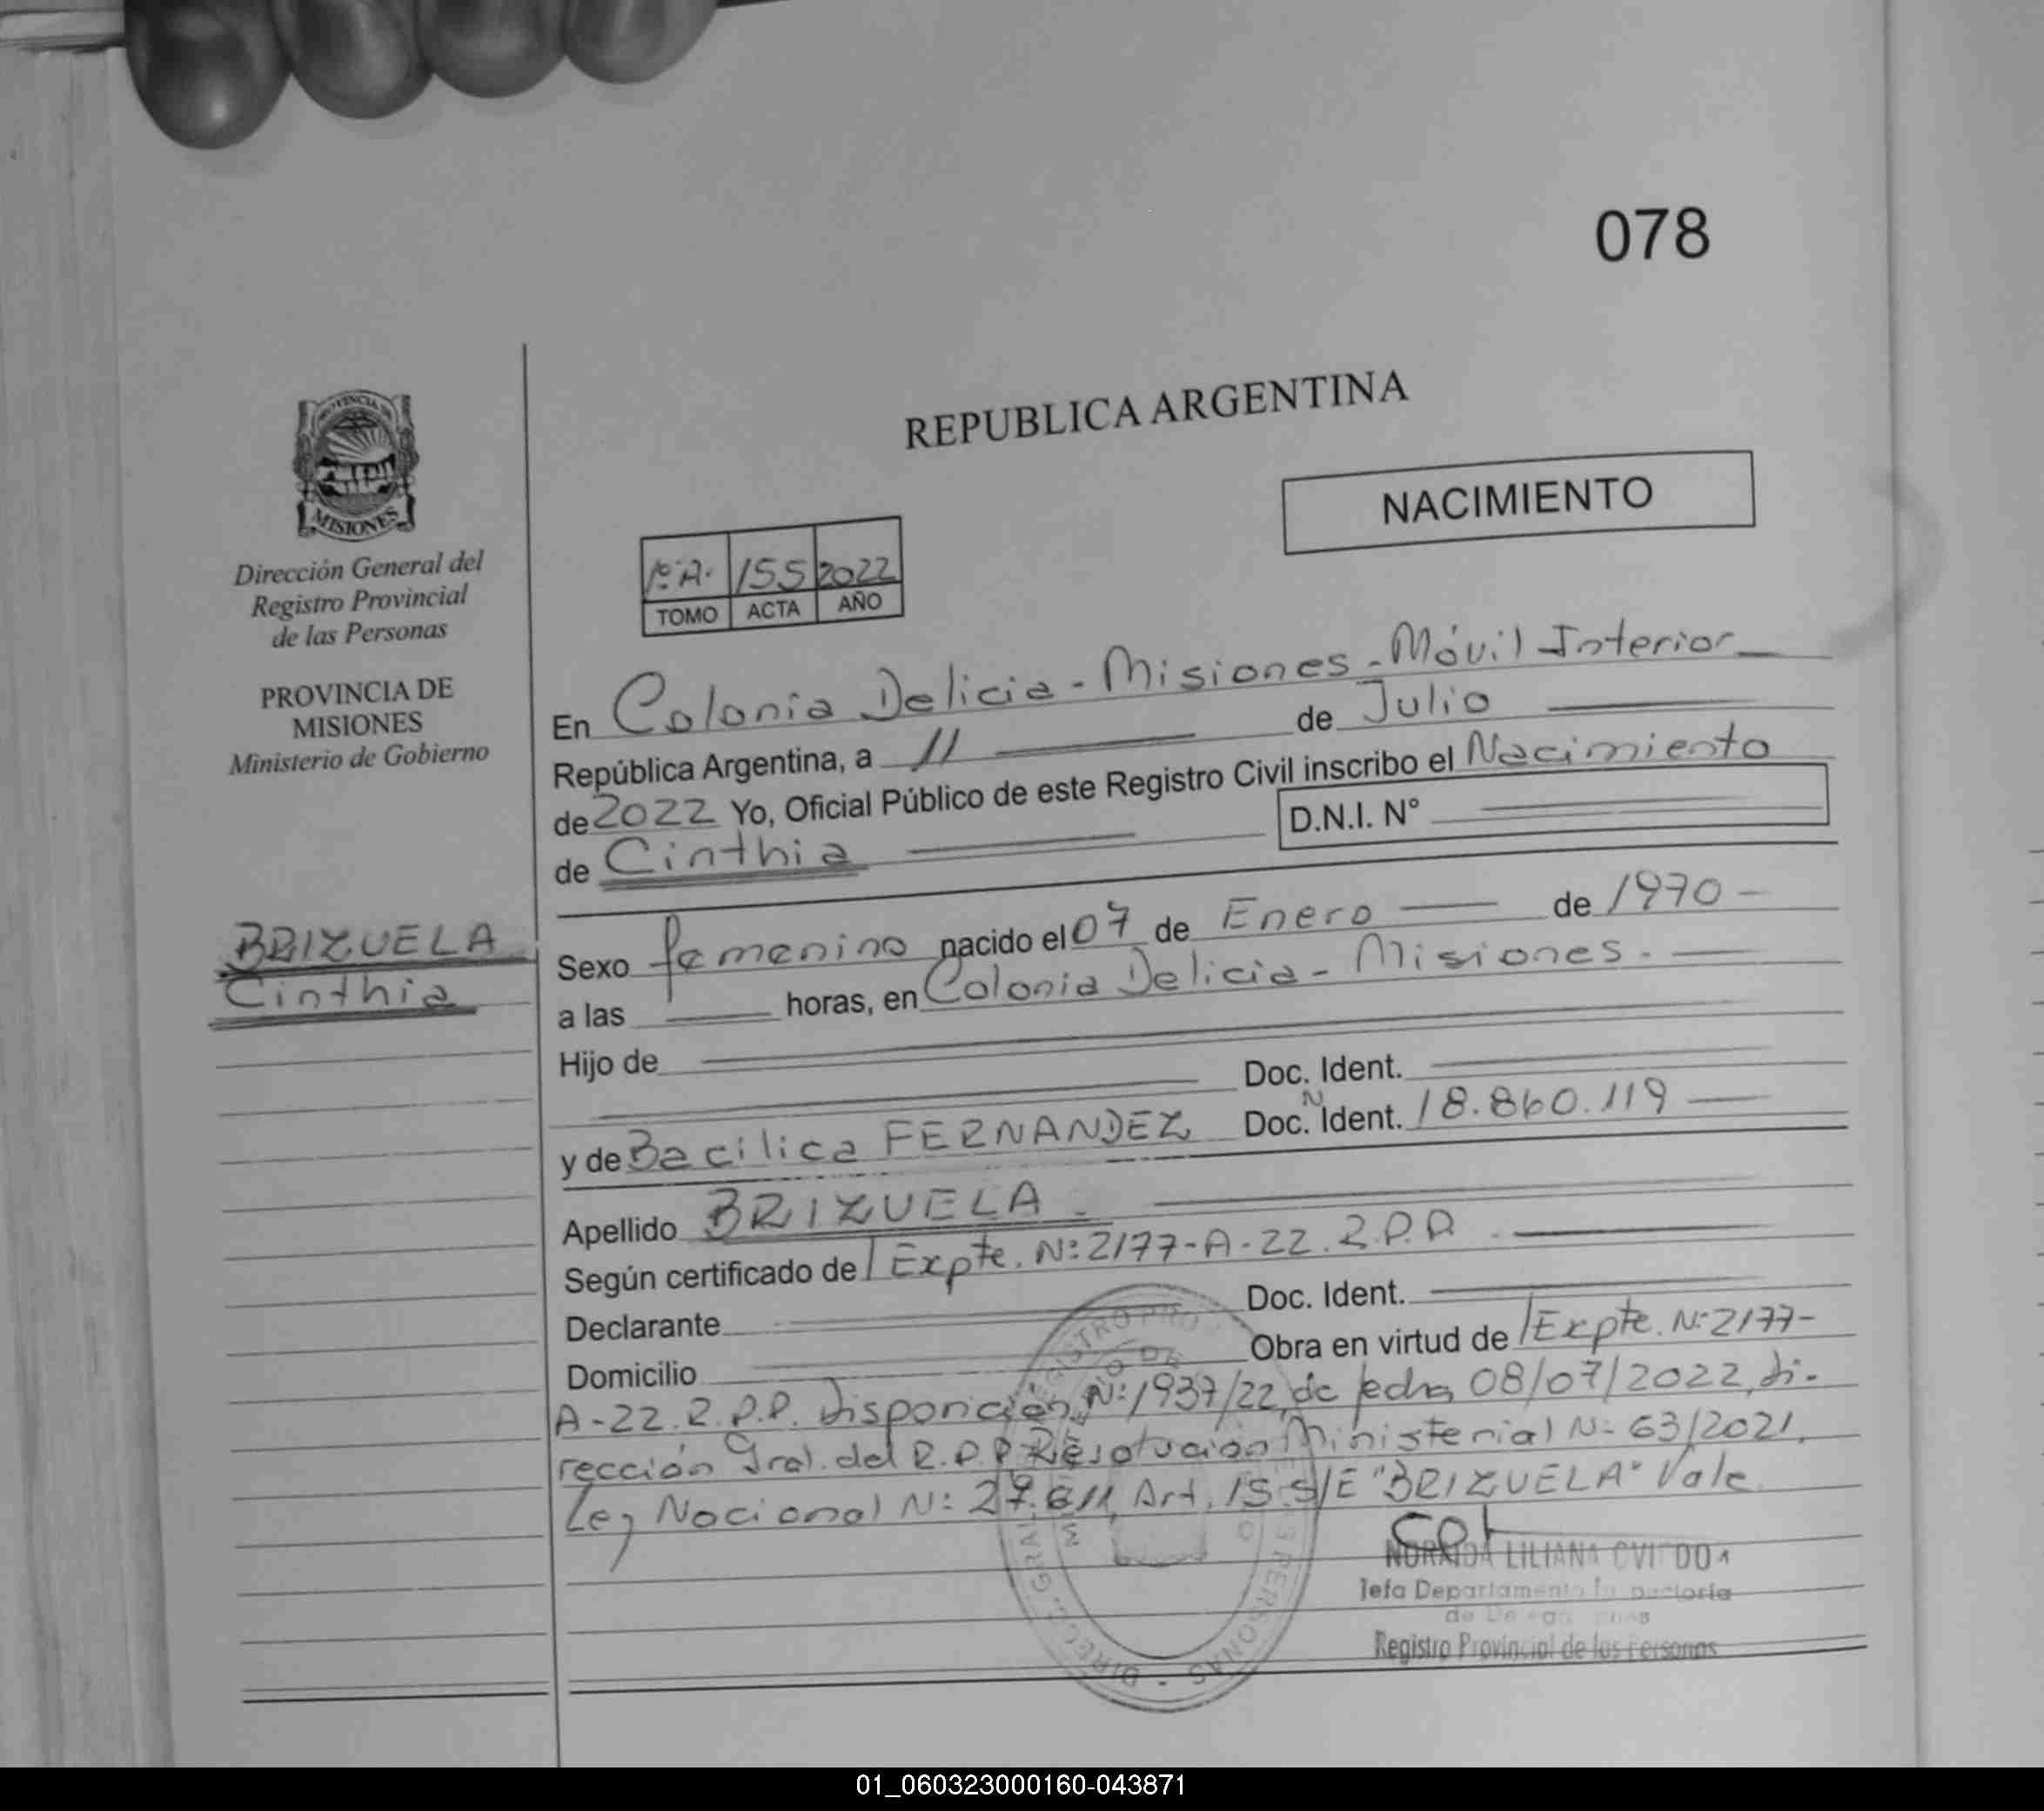 078
REPUBLICA ARGENTINA
NACIMIENTO
PROVINCIA DE
MISIONES
Dirección General del
Registro Provincial
de las Personas
PROVINCIA DE
MISIONES
Ministerio de Gobierno
1º A. 155 2022
TOMO ACTA AÑO
En Colonia Delicia - Misiones - Móvil Interior
República Argentina, a 11 de Julio
de 2022 Yo, Oficial Público de este Registro Civil inscribo el Nacimiento
de Cinthia
D.N.I. N°
BRIZUELA
Cinthia
Sexo femenino nacido el 07 de Enero de 1970
a las horas, en Colonia Delicia - Misiones.
Hijo de
Doc. Ident.
y de Bacilica FERNANDEZ Doc. Ident. 18.860.119
N
Apellido BRIZUELA
Según certificado de Expte. Nº 2177-A-22. R.P.P.
Declarante Doc. Ident.
Domicilio Obra en virtud de Expte. Nº 2177-
A-22. R.P.P. Disposición Nº 1937/22, de fecha 08/07/2022, di-
rección Gral. del R.P.P. Resolución Ministerial Nº 63/2021,
Ley Nacional Nº 27.611, Art. 15. S/E "BRIZUELA" Vale
LILIANA OVIEDO
Jefa Departamento
Registro Provincial de las Personas
01_060323000160-043871